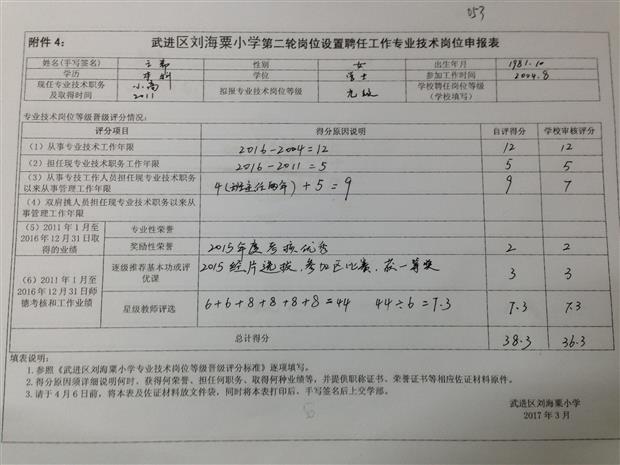 053
附件4： 武进区刘海粟小学第二轮岗位设置聘任工作专业技术岗位申报表
姓名(手写签名) 性别 女 出生年月 1981.10
学历 本科 学位 学士 参加工作时间 2004.8
现任专业技术职务及取得时间 小高 2011 拟报专业技术岗位等级 九级 学校聘任岗位等级（学校填写）
专业技术岗位等级晋级评分情况：
评分项目 得分原因说明 自评得分 学校审核评分
（1）从事专业技术工作年限 2016-2004=12 12 12
（2）担任现专业技术职务工作年限 2016-2011=5 5 5
（3）从事专技工作人员担任现专业技术职务以来从事管理工作年限 4(班主任两年)+5=9 9 7
（4）双肩挑人员担任现专业技术职务以来从事管理工作年限
（5）2011年1月至2016年12月31日取得的业绩 专业性荣誉
奖励性荣誉 2015年度考核优秀 2 2
（6）2011年1月至2016年12月31日师德考核和工作业绩 逐级推荐基本功或评优课 2015 片选拔，参加区比赛，获一等奖 3 3
星级教师评选 6+6+8+8+8+8=44 44÷6=7.3 7.3 7.3
总计得分 38.3 36.3
填表说明：
1.参照《武进区刘海粟小学专业技术岗位等级晋级评分标准》逐项填写。
2.得分原因须详细说明何时、获得何荣誉、担任何职务、取得何种业绩等，并提供职称证书、荣誉证书等相应佐证材料原件。
3.请于4月6日前，将本表及佐证材料放文件袋，同时将本表打印后，手写签名后上交学部。
武进区刘海粟小学
2017年3月